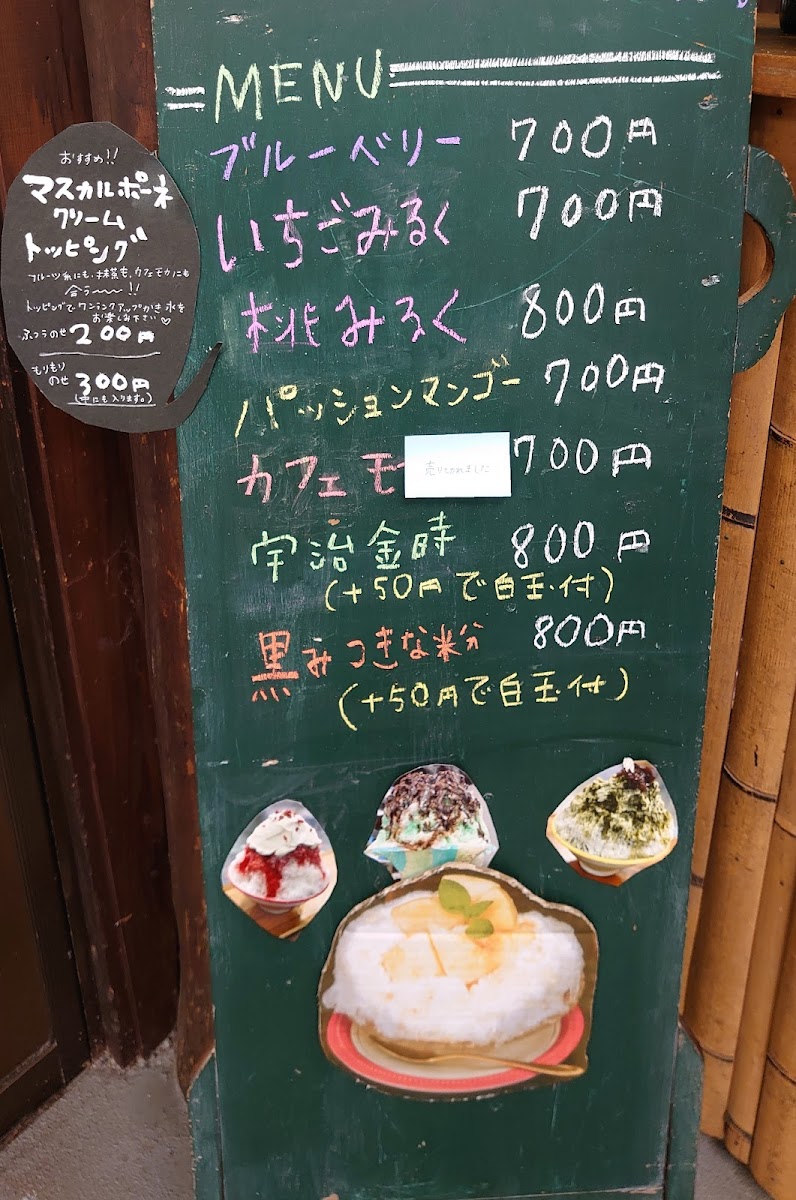 MENU
ブルーベリー 700円
いちごみるく 700円
桃みるく 800円
パッションマンゴー 700円
カフェモ 700円
売り切れました
宇治金時 800円
(+50円で白玉付)
黒みつきな粉 800円
(+50円で白玉付)
おすすめ!!
マスカルポーネ
クリーム
トッピング
フルーツ系にも、抹茶も、カフェモカにも
合う〜〜!!
トッピングでワンランクアップかき氷を
お楽しみ下さい♡
ふつうのせ 200円
もりもり
のせ 300円
(中にも入ります。)